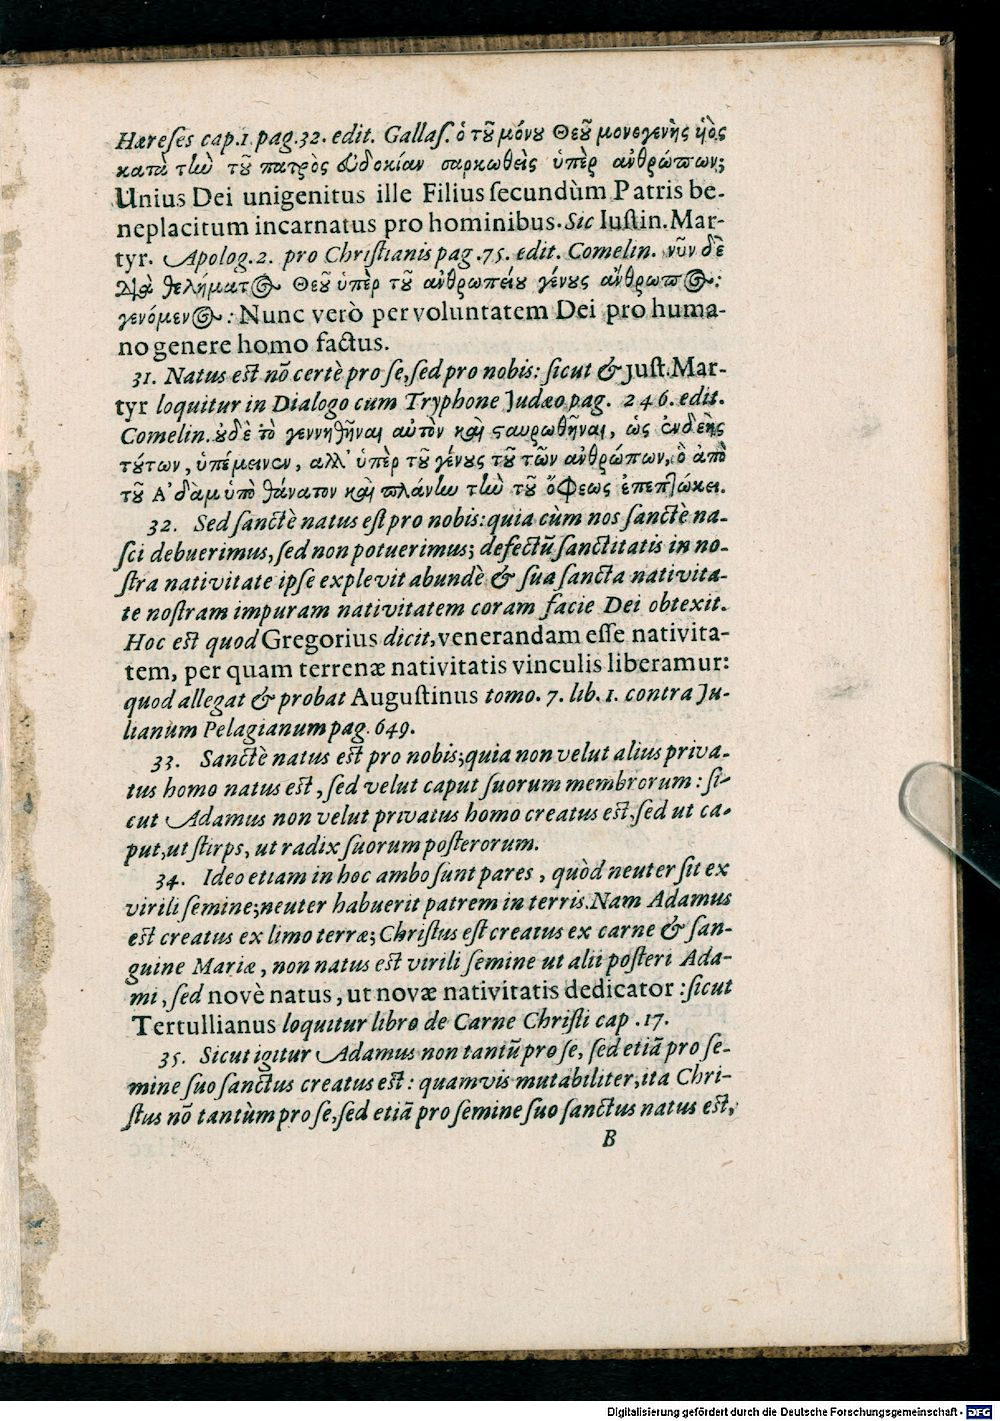 Hæreſes cap.1. pag.32. edit. Gallaſ. ὁ τȣ͂ μόνȣ Θεȣ͂ μονογενὴς ὑὸς
κατὰ τὴν τȣ͂ πατρὸς ἐυδοκίαν σαρκωθεὶς ὑπὲρ ἀνθρώπων;
Unius Dei unigenitus ille Filius ſecundùm Patris be-
neplacitum incarnatus pro hominibus. Sic Iuſtin. Mar-
tyr. Apolog. 2. pro Chriſtianis pag. 75. edit. Comelin. νῦν δὲ
Διὰ θελήματος Θεȣ͂ ὑπὲρ τȣ͂ ἀνθρωπείȣ γένȣς ἄνθρωπος:
γενόμενος: Nunc verò per voluntatem Dei pro huma-
no genere homo factus.
31. Natus eſt nō certè pro ſe, ſed pro nobis: ſicut & Juſt. Mar-
tyr loquitur in Dialogo cum Tryphone Judæo pag. 246. edit.
Comelin. ȣ̓δὲ τὸ γεννηθῆναι αὐτὸν καὶ ϛαυρωθῆναι, ὡς ἐνδεὴς
τȣ́των, ὑπέμεινεν, ἀλλ' ὑπὲρ τȣ͂ γένȣς τȣ͂ τῶν ἀνθρώπων, ὃ ἀπὸ
τȣ͂ Α'δὰμ ὑπὸ θάνατον καὶ πλάνην τὴν τȣ͂ ὄφεως ἐπεπτώκει.
32. Sed ſanctè natus eſt pro nobis: quia cùm nos ſanctè na-
ſci debuerimus, ſed non potuerimus; defectū ſanctitatis in no-
ſtra nativitate ipſe explevit abundè & ſua ſancta nativita-
te noſtram impuram nativitatem coram facie Dei obtexit.
Hoc eſt quod Gregorius dicit, venerandam eſſe nativita-
tem, per quam terrenæ nativitatis vinculis liberamur:
quod allegat & probat Auguſtinus tomo. 7. lib. 1. contra Ju-
lianum Pelagianum pag. 649.
33. Sanctè natus eſt pro nobis; quia non velut alius priva-
tus homo natus eſt, ſed velut caput ſuorum membrorum: ſi-
cut Adamus non velut privatus homo creatus eſt, ſed ut ca-
put, ut ſtirps, ut radix ſuorum poſterorum.
34. Ideo etiam in hoc ambo ſunt pares, quòd neuter ſit ex
virili ſemine; neuter habuerit patrem in terris. Nam Adamus
eſt creatus ex limo terræ; Chriſtus eſt creatus ex carne & ſan-
guine Mariæ, non natus eſt virili ſemine ut alii poſteri Ada-
mi, ſed novè natus, ut novæ nativitatis dedicator: ſicut
Tertullianus loquitur libro de Carne Chriſti cap. 17.
35. Sicut igitur Adamus non tantū pro ſe, ſed etiā pro ſe-
mine ſuo ſanctus creatus eſt: quamvis mutabiliter, ita Chri-
ſtus nō tantùm pro ſe, ſed etiā pro ſemine ſuo ſanctus natus eſt,
B
Digitalisierung gefördert durch die Deutsche Forschungsgemeinschaft - DFG